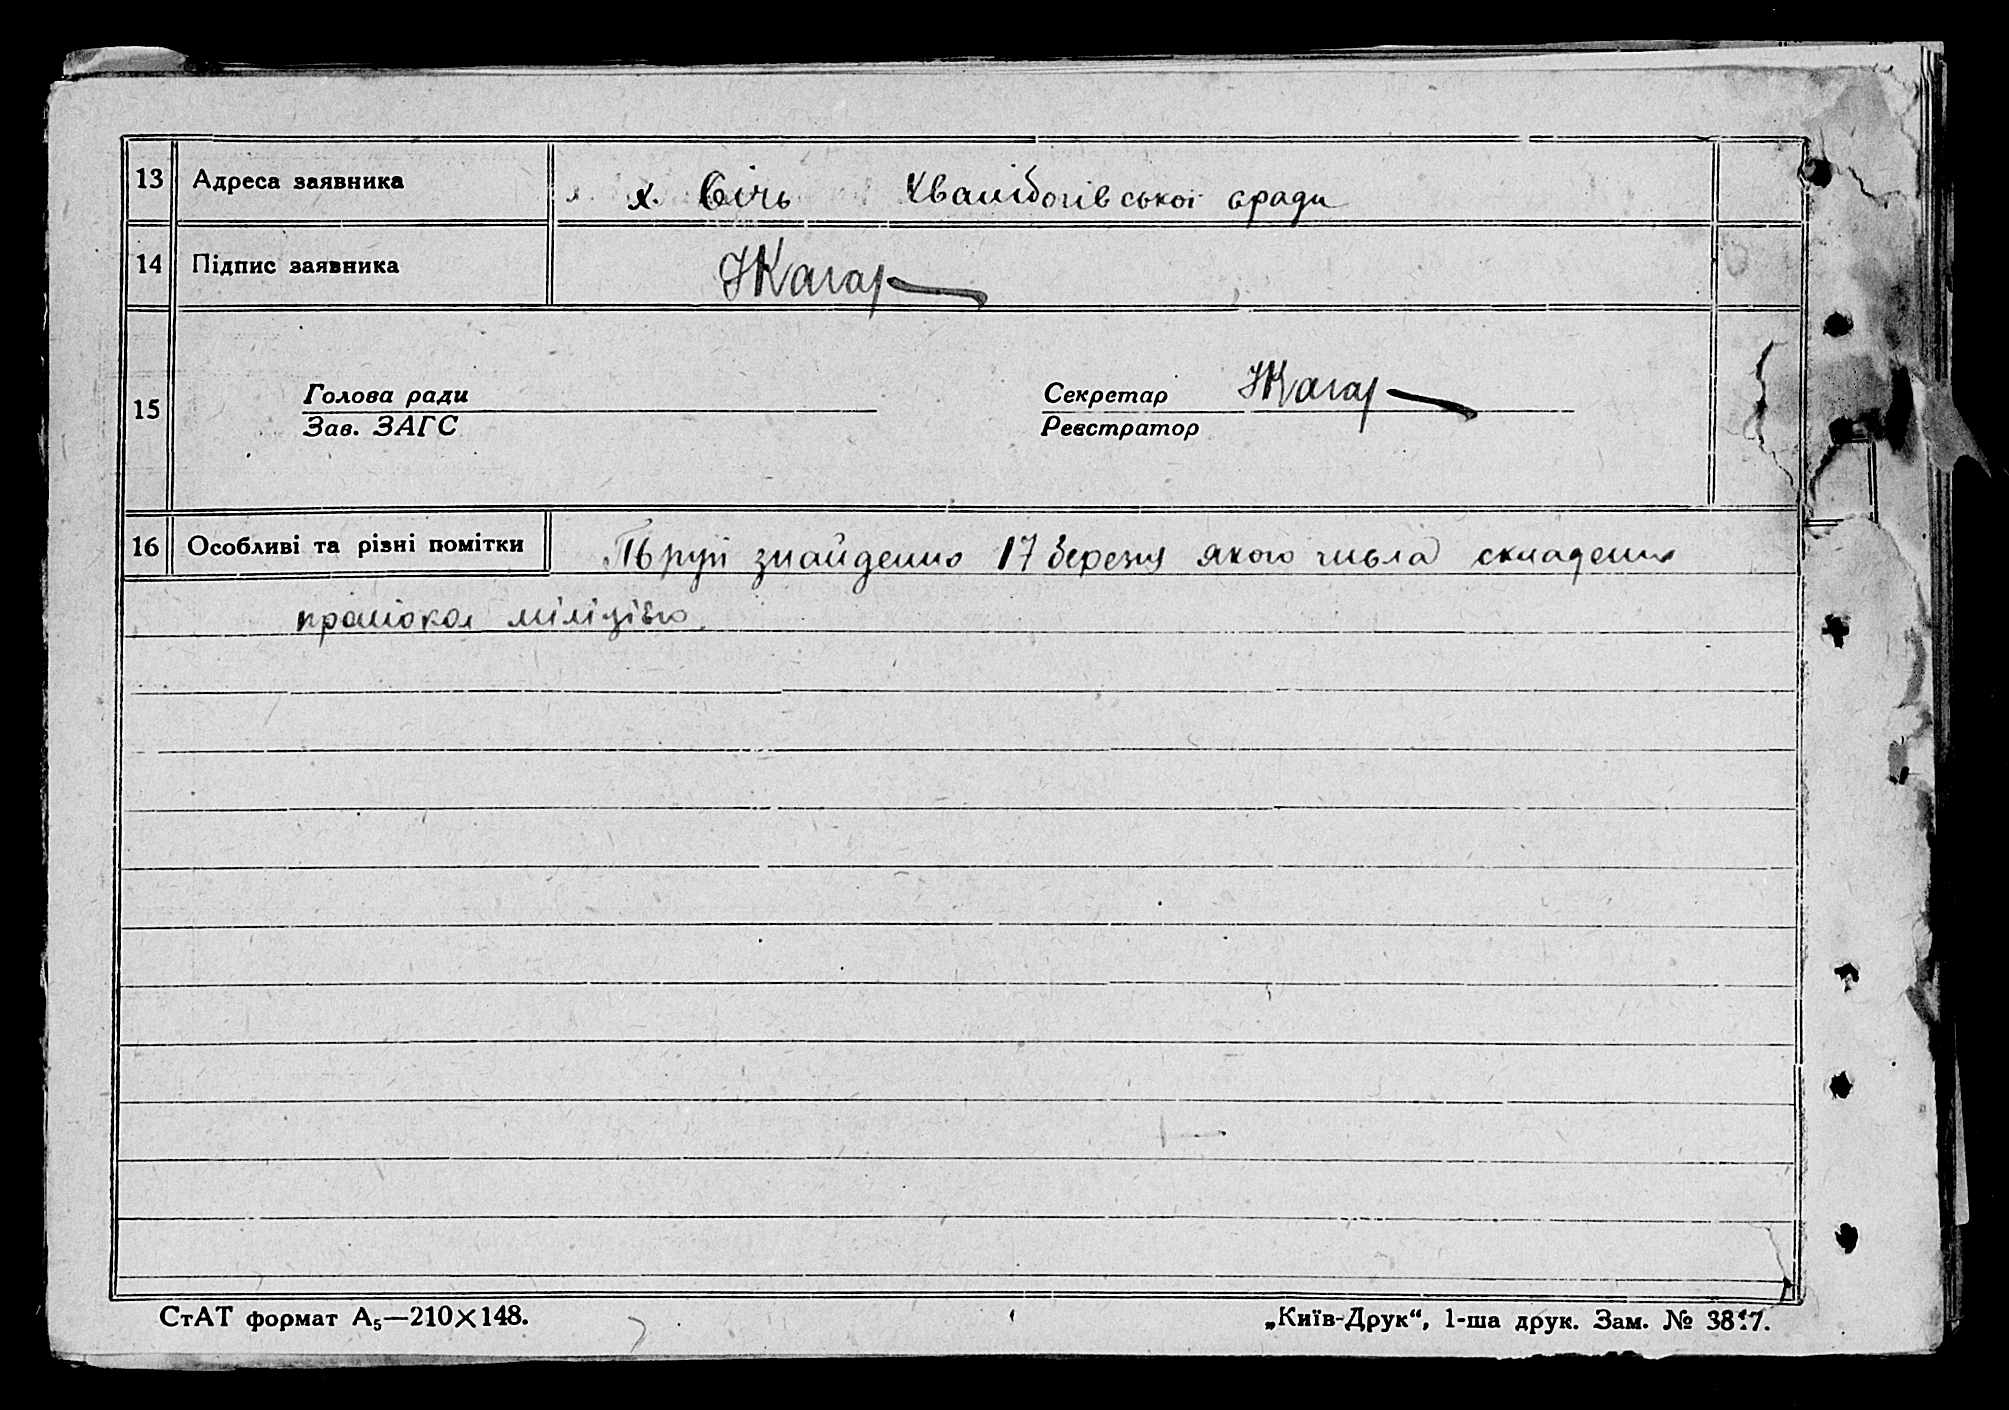 13 Адреса заявника х. Січь Хваtібогівської сради
14 Підпис заявника
15 Голова ради Секретар
Зав. ЗАГС Реєстратор
16 Особливі та різні помітки Труп знайденно 17 березня якого числа складенно
протокол міліцією
СтАТ формат А₅—210×148.
„Київ-Друк“, 1-ша друк. Зам. №